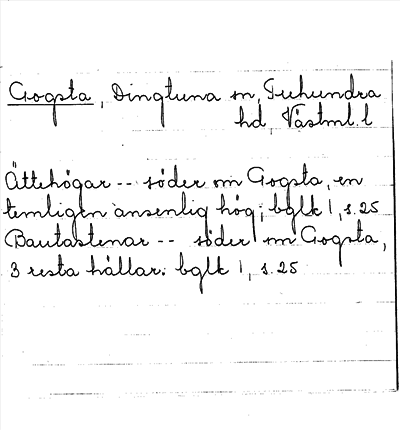 Gogsta, Dingtuna sn, Tuhundra
hd, Västml. l
Ättehögar -- söder om Gogsta, en
temligen ansenlig hög; bglk 1, s. 25
Bautastenar -- söder om Gogsta,
3 resta hällar. bglk 1, s. 25